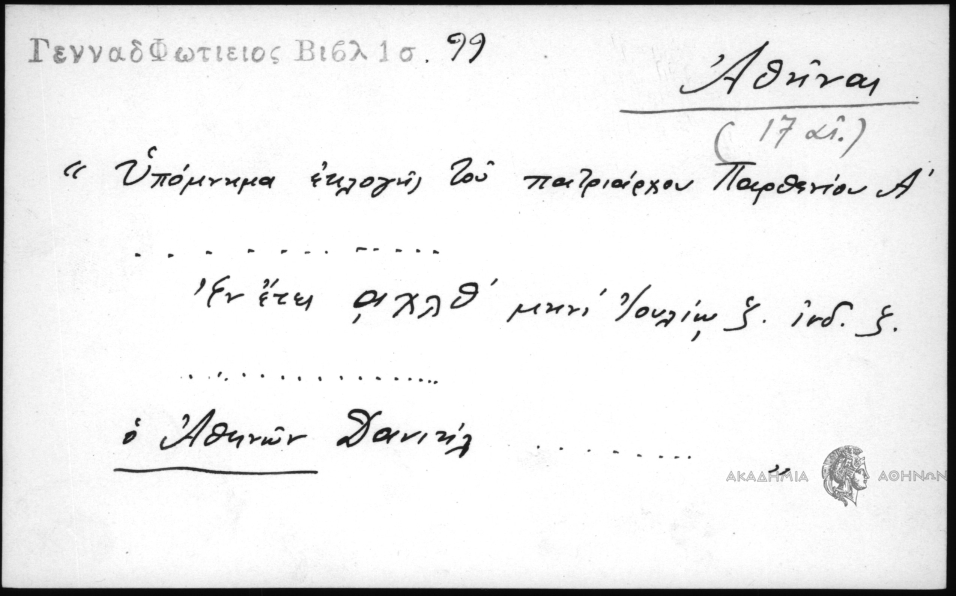 ΓενναδΦωτιειος Βιβλ 1σ. 99
Ἀθῆναι
(17 αἰ.)
“ Ὑπόμνημα ἐκλογῆς τοῦ πατριάρχου Παρθενίου Α'
. . . . . . . . . . . . . .
Ἐν ἔτει ͵αχλθ' μηνὶ Ἰουλίῳ ζ. ἰνδ. ζ.
. . . . . . . . . . . . . . . .
ὁ Ἀθηνῶν Δανιήλ . . . . . . . . ”
ΑΚΑΔΗΜΙΑ ΑΘΗΝΩΝ